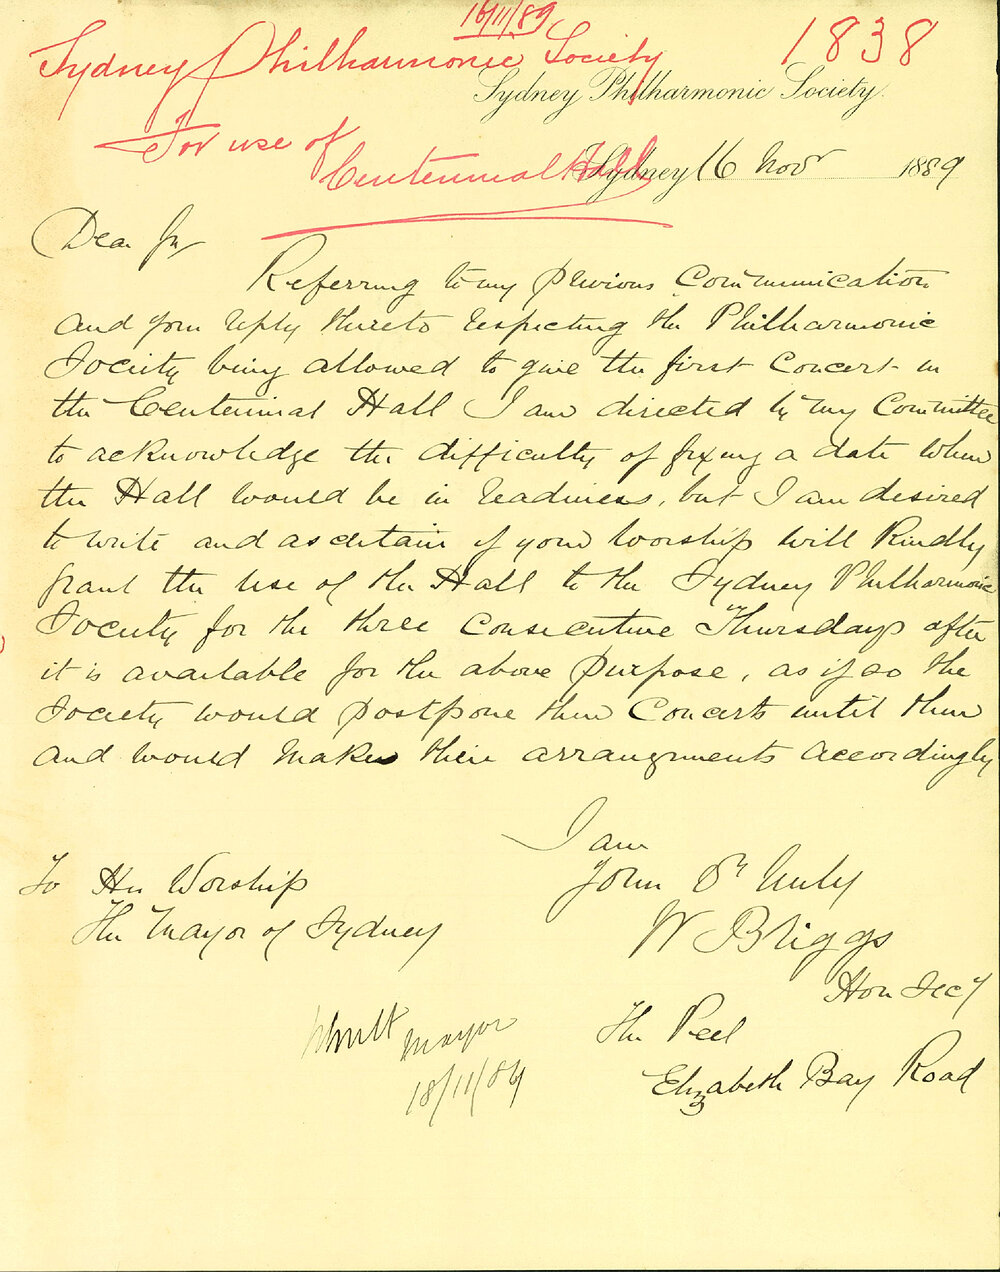 16/11/89
Sydney Philharmonic Society
1838
Sydney Philharmonic Society.
For use of
Centennial Hall
Sydney 16 Novr 1889
Dear Sir
Referring to my previous Communication
and your reply thereto respecting the Philharmonic
Society being allowed to give the first Concert in
the Centennial Hall I am directed by my Committee
to acknowledge the difficulty of fixing a date when
the Hall would be in readiness, but I am desired
to write and ascertain if your Worship will kindly
grant the use of the Hall to the Sydney Philharmonic
Society for the three Consecutive Thursdays after
it is available for the above purpose, as if so the
Society would postpone their Concerts until then
and would make their arrangements accordingly
I am
Your Ob't
W Briggs
Hon Secy
To His Worship
The Mayor of Sydney
The Peel
Elizabeth Bay Road
Mayor
18/11/89